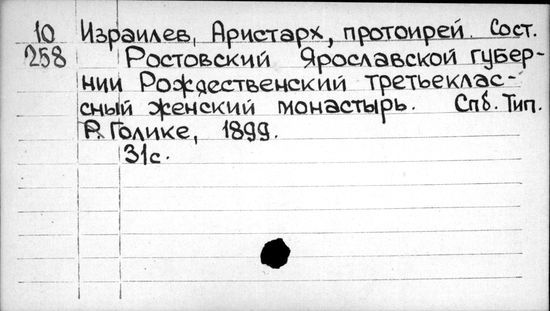 10 Израилев, Аристарх, протоирей. Сост.
258 Ростовский Ярославской губер-
нии Рождественский третьеклас-
сный женский монастырь. Спб. Тип.
Р. Голике, 1899.
31с.